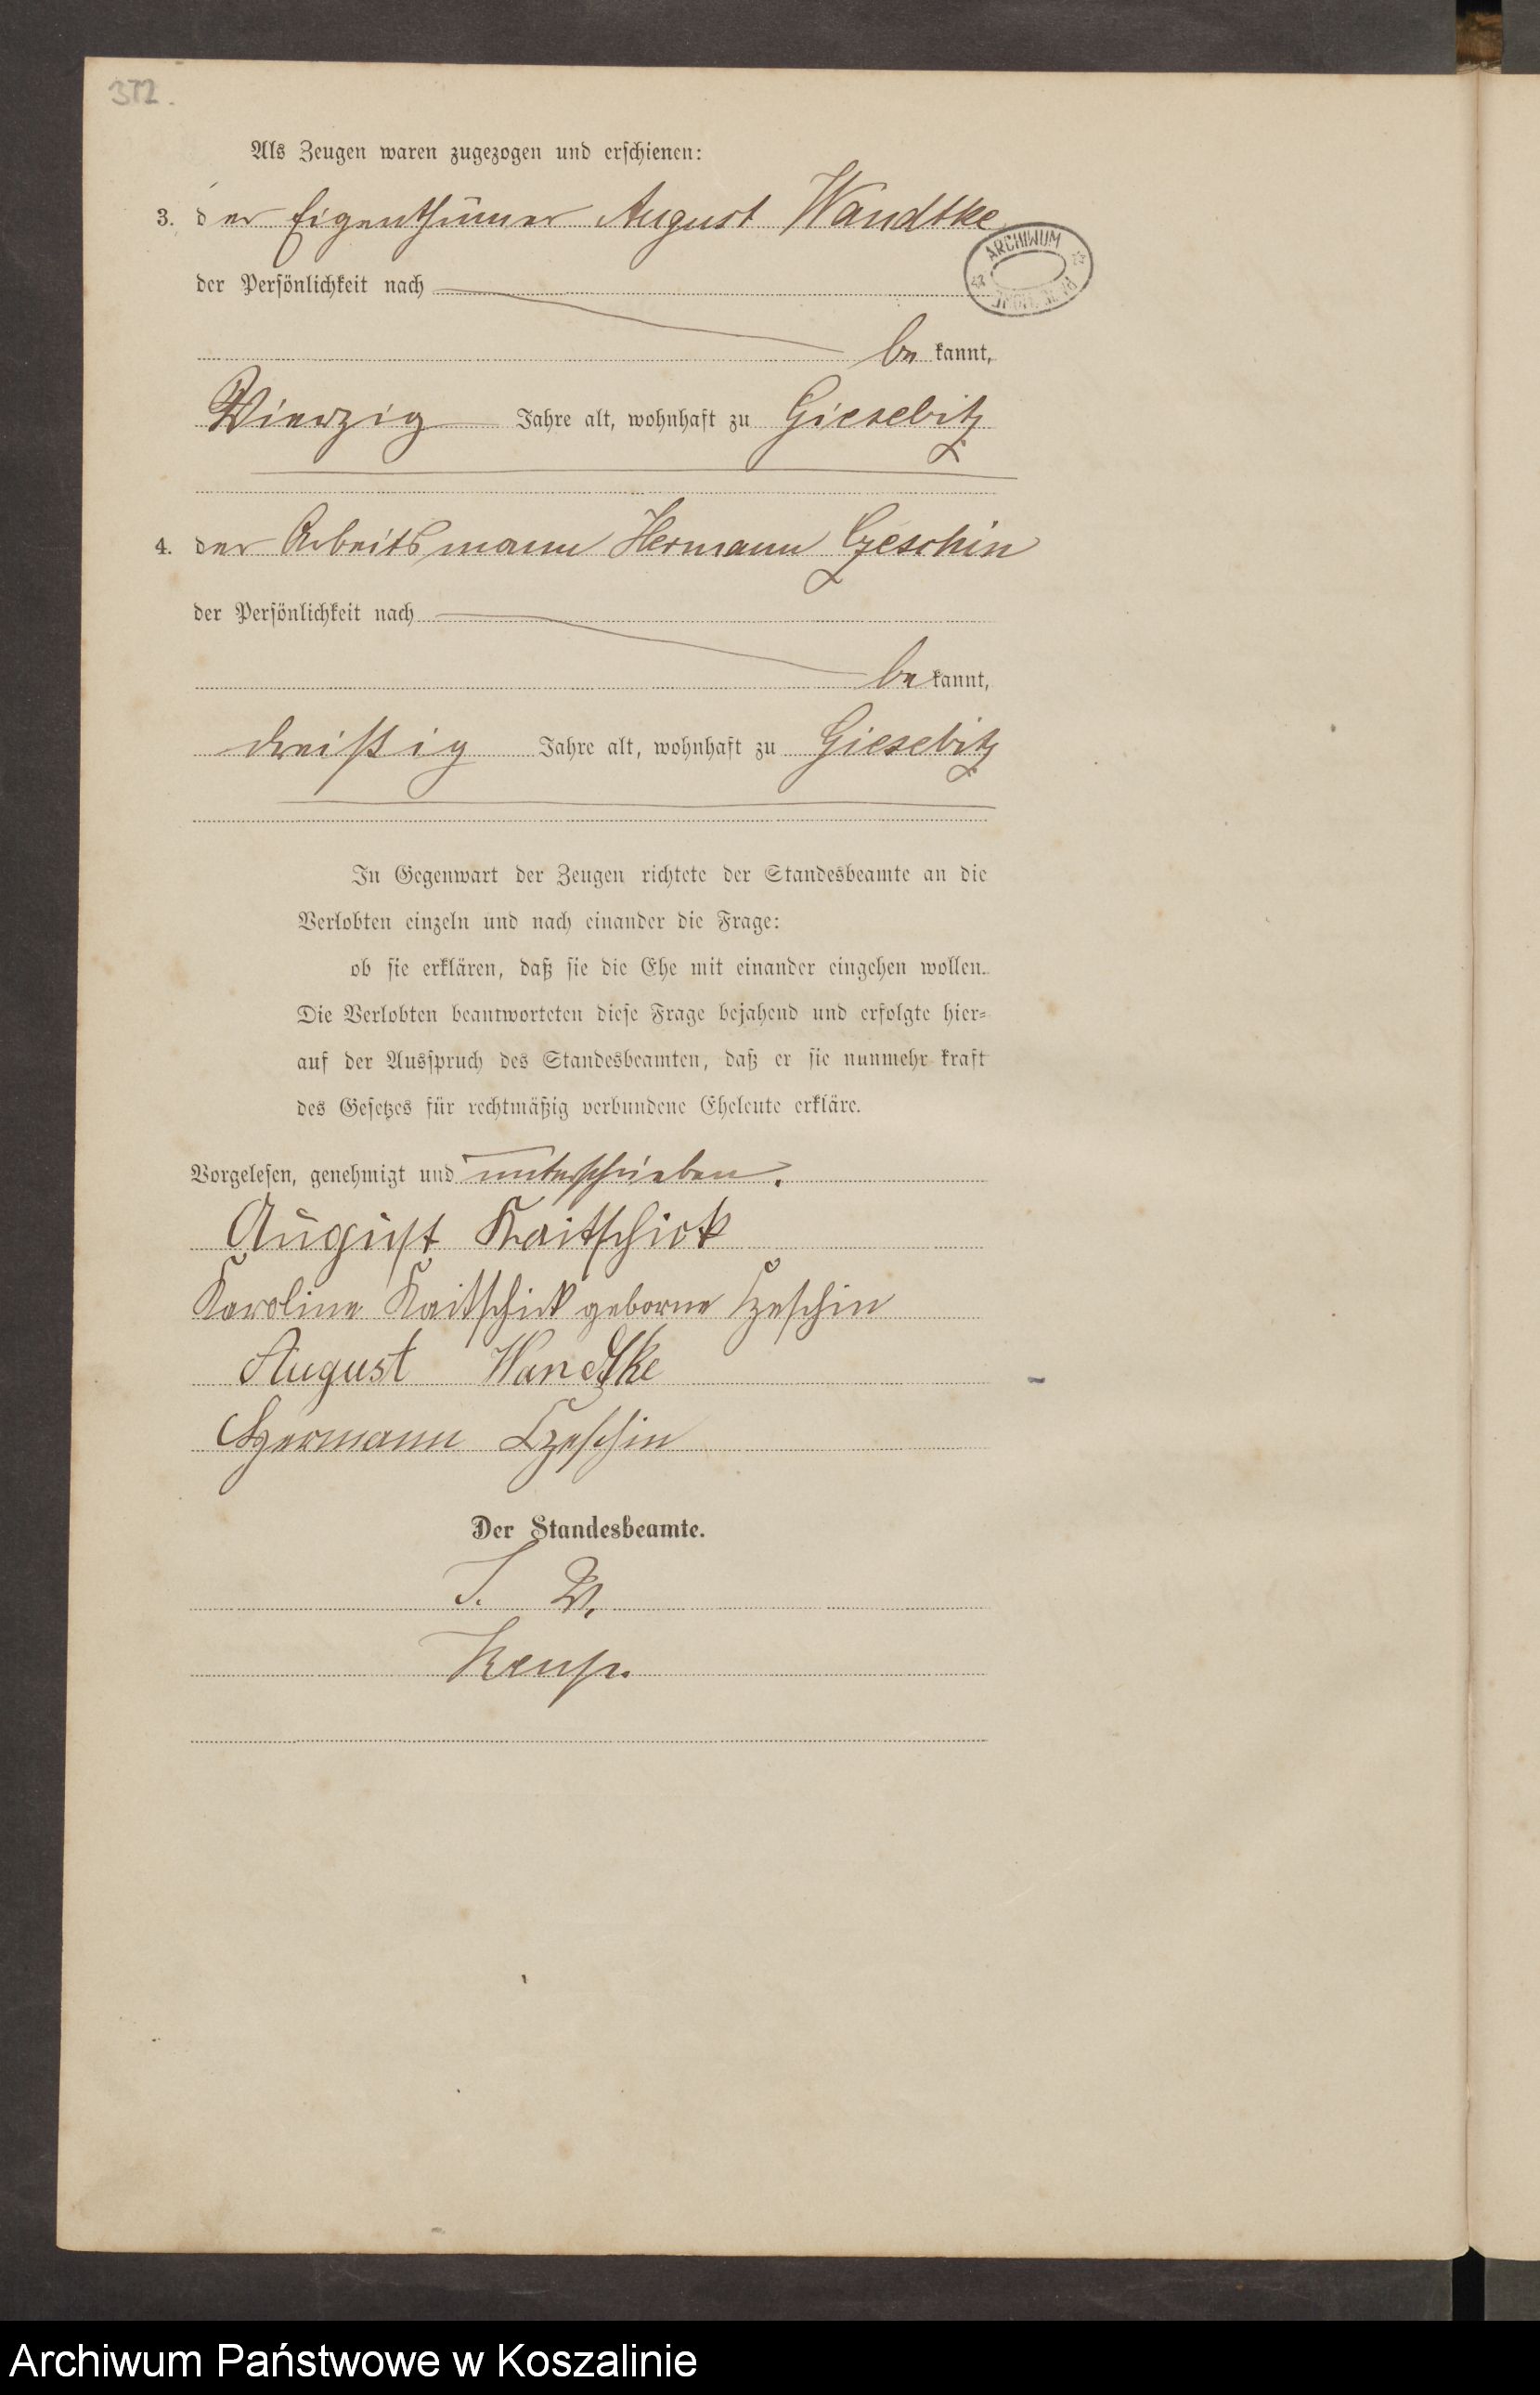 372.
Als Zeugen waren zugezogen und erschienen:
3. der Eigenthümer August Wandtke
ARCHIWUM
der Persönlichkeit nach
be kannt,
Vierzig Jahre alt, wohnhaft zu Giesebitz
4. der Arbeitsmann Hermann Czeschin
der Persönlichkeit nach
be kannt,
dreißig Jahre alt, wohnhaft zu Giesebitz
In Gegenwart der Zeugen richtete der Standesbeamte an die
Verlobten einzeln und nach einander die Frage:
ob sie erklären, daß sie die Ehe mit einander eingehen wollen.
Die Verlobten beantworteten diese Frage bejahend und erfolgte hier-
auf der Ausspruch des Standesbeamten, daß er sie nunmehr kraft
des Gesetzes für rechtmäßig verbundene Eheleute erkläre.
Vorgelesen, genehmigt und unterschrieben.
August Kaitschick
Karoline Kaitschick geborne Czeschin
August Wandtke
Hermann Czeschin
Der Standesbeamte.
I. V.
Archiwum Państwowe w Koszalinie